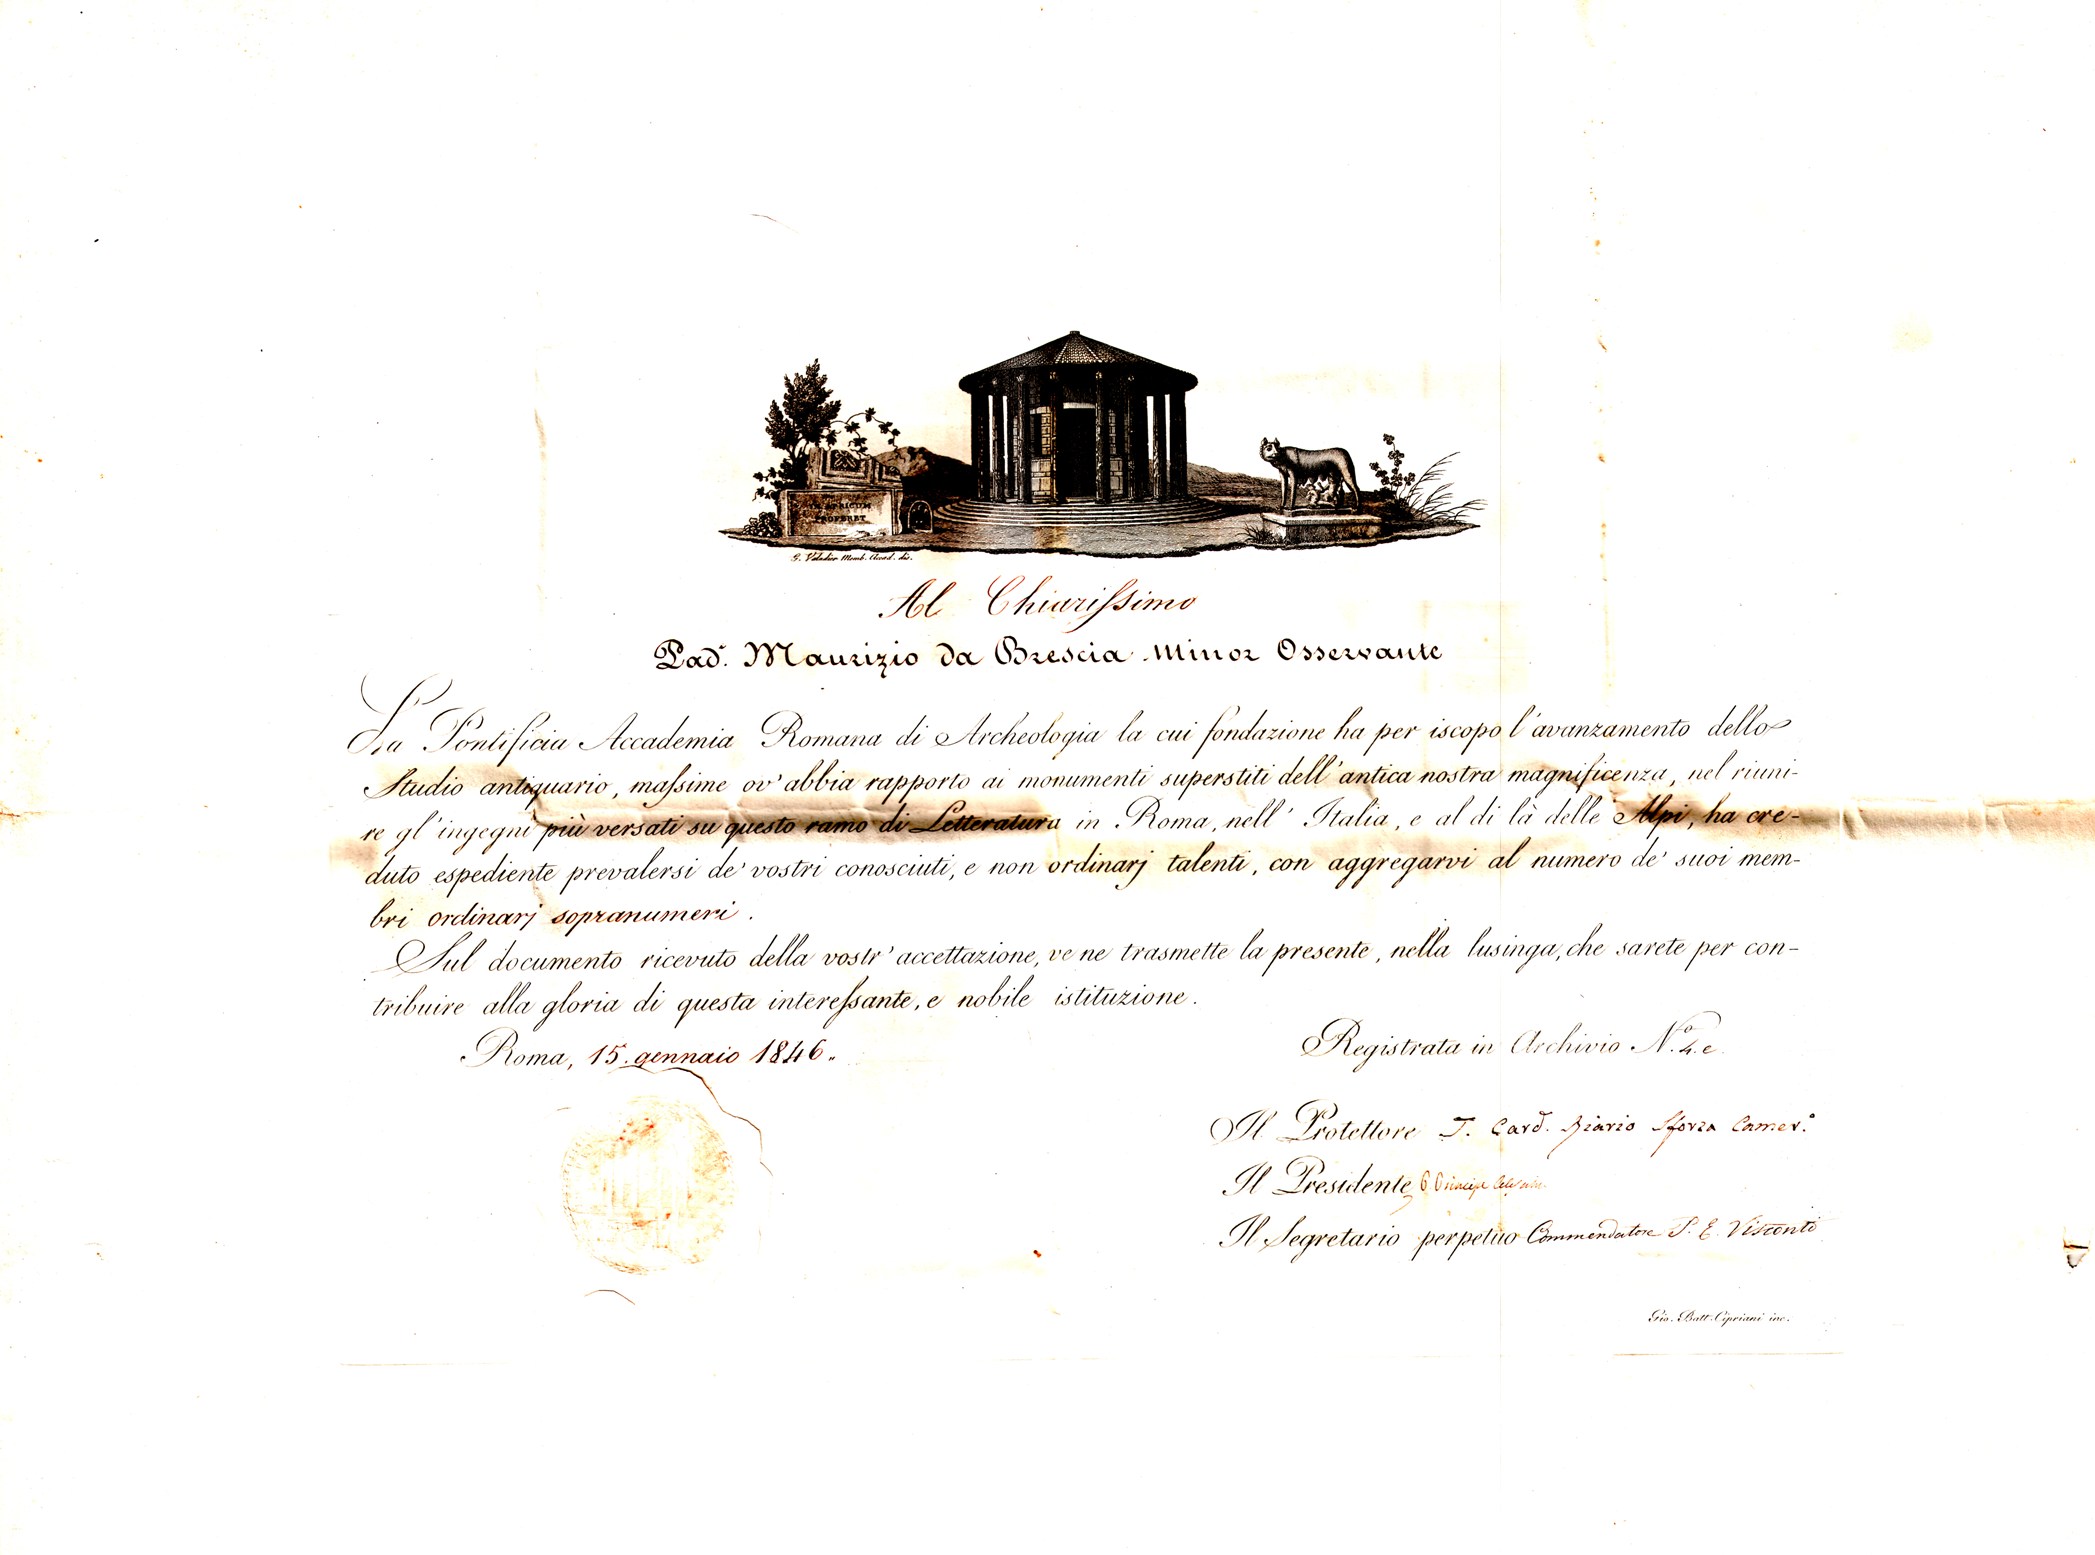 IN APRICUM
PROFERET
G. Valadier Memb. Accad. dis.
Al Chiarissimo
Pad.ᵉ Maurizio da Brescia Minor Osservante
La Pontificia Accademia Romana di Archeologia la cui fondazione ha per iscopo l'avanzamento dello
Studio antiquario, massime ov'abbia rapporto ai monumenti superstiti dell'antica nostra magnificenza, nel riuni-
re gl'ingegni più versati su questo ramo di Letteratura in Roma, nell'Italia, e al di là delle Alpi, ha cre-
duto espediente prevalersi de' vostri conosciuti, e non ordinarj talenti, con aggregarvi al numero de' suoi mem-
bri ordinarj sopranumeri.
Sul documento ricevuto della vostr'accettazione, ve ne trasmette la presente, nella lusinga, che sarete per con-
tribuire alla gloria di questa interessante, e nobile istituzione.
Roma, 15. gennaio 1846.
Registrata in Archivio N.º 4. e.
Il Protettore T. Card. Riario Sforza Camer.º
Il Presidente Principe
Il Segretario perpetuo Commendatore P. E. Visconti
Gio. Batt. Cipriani inc.